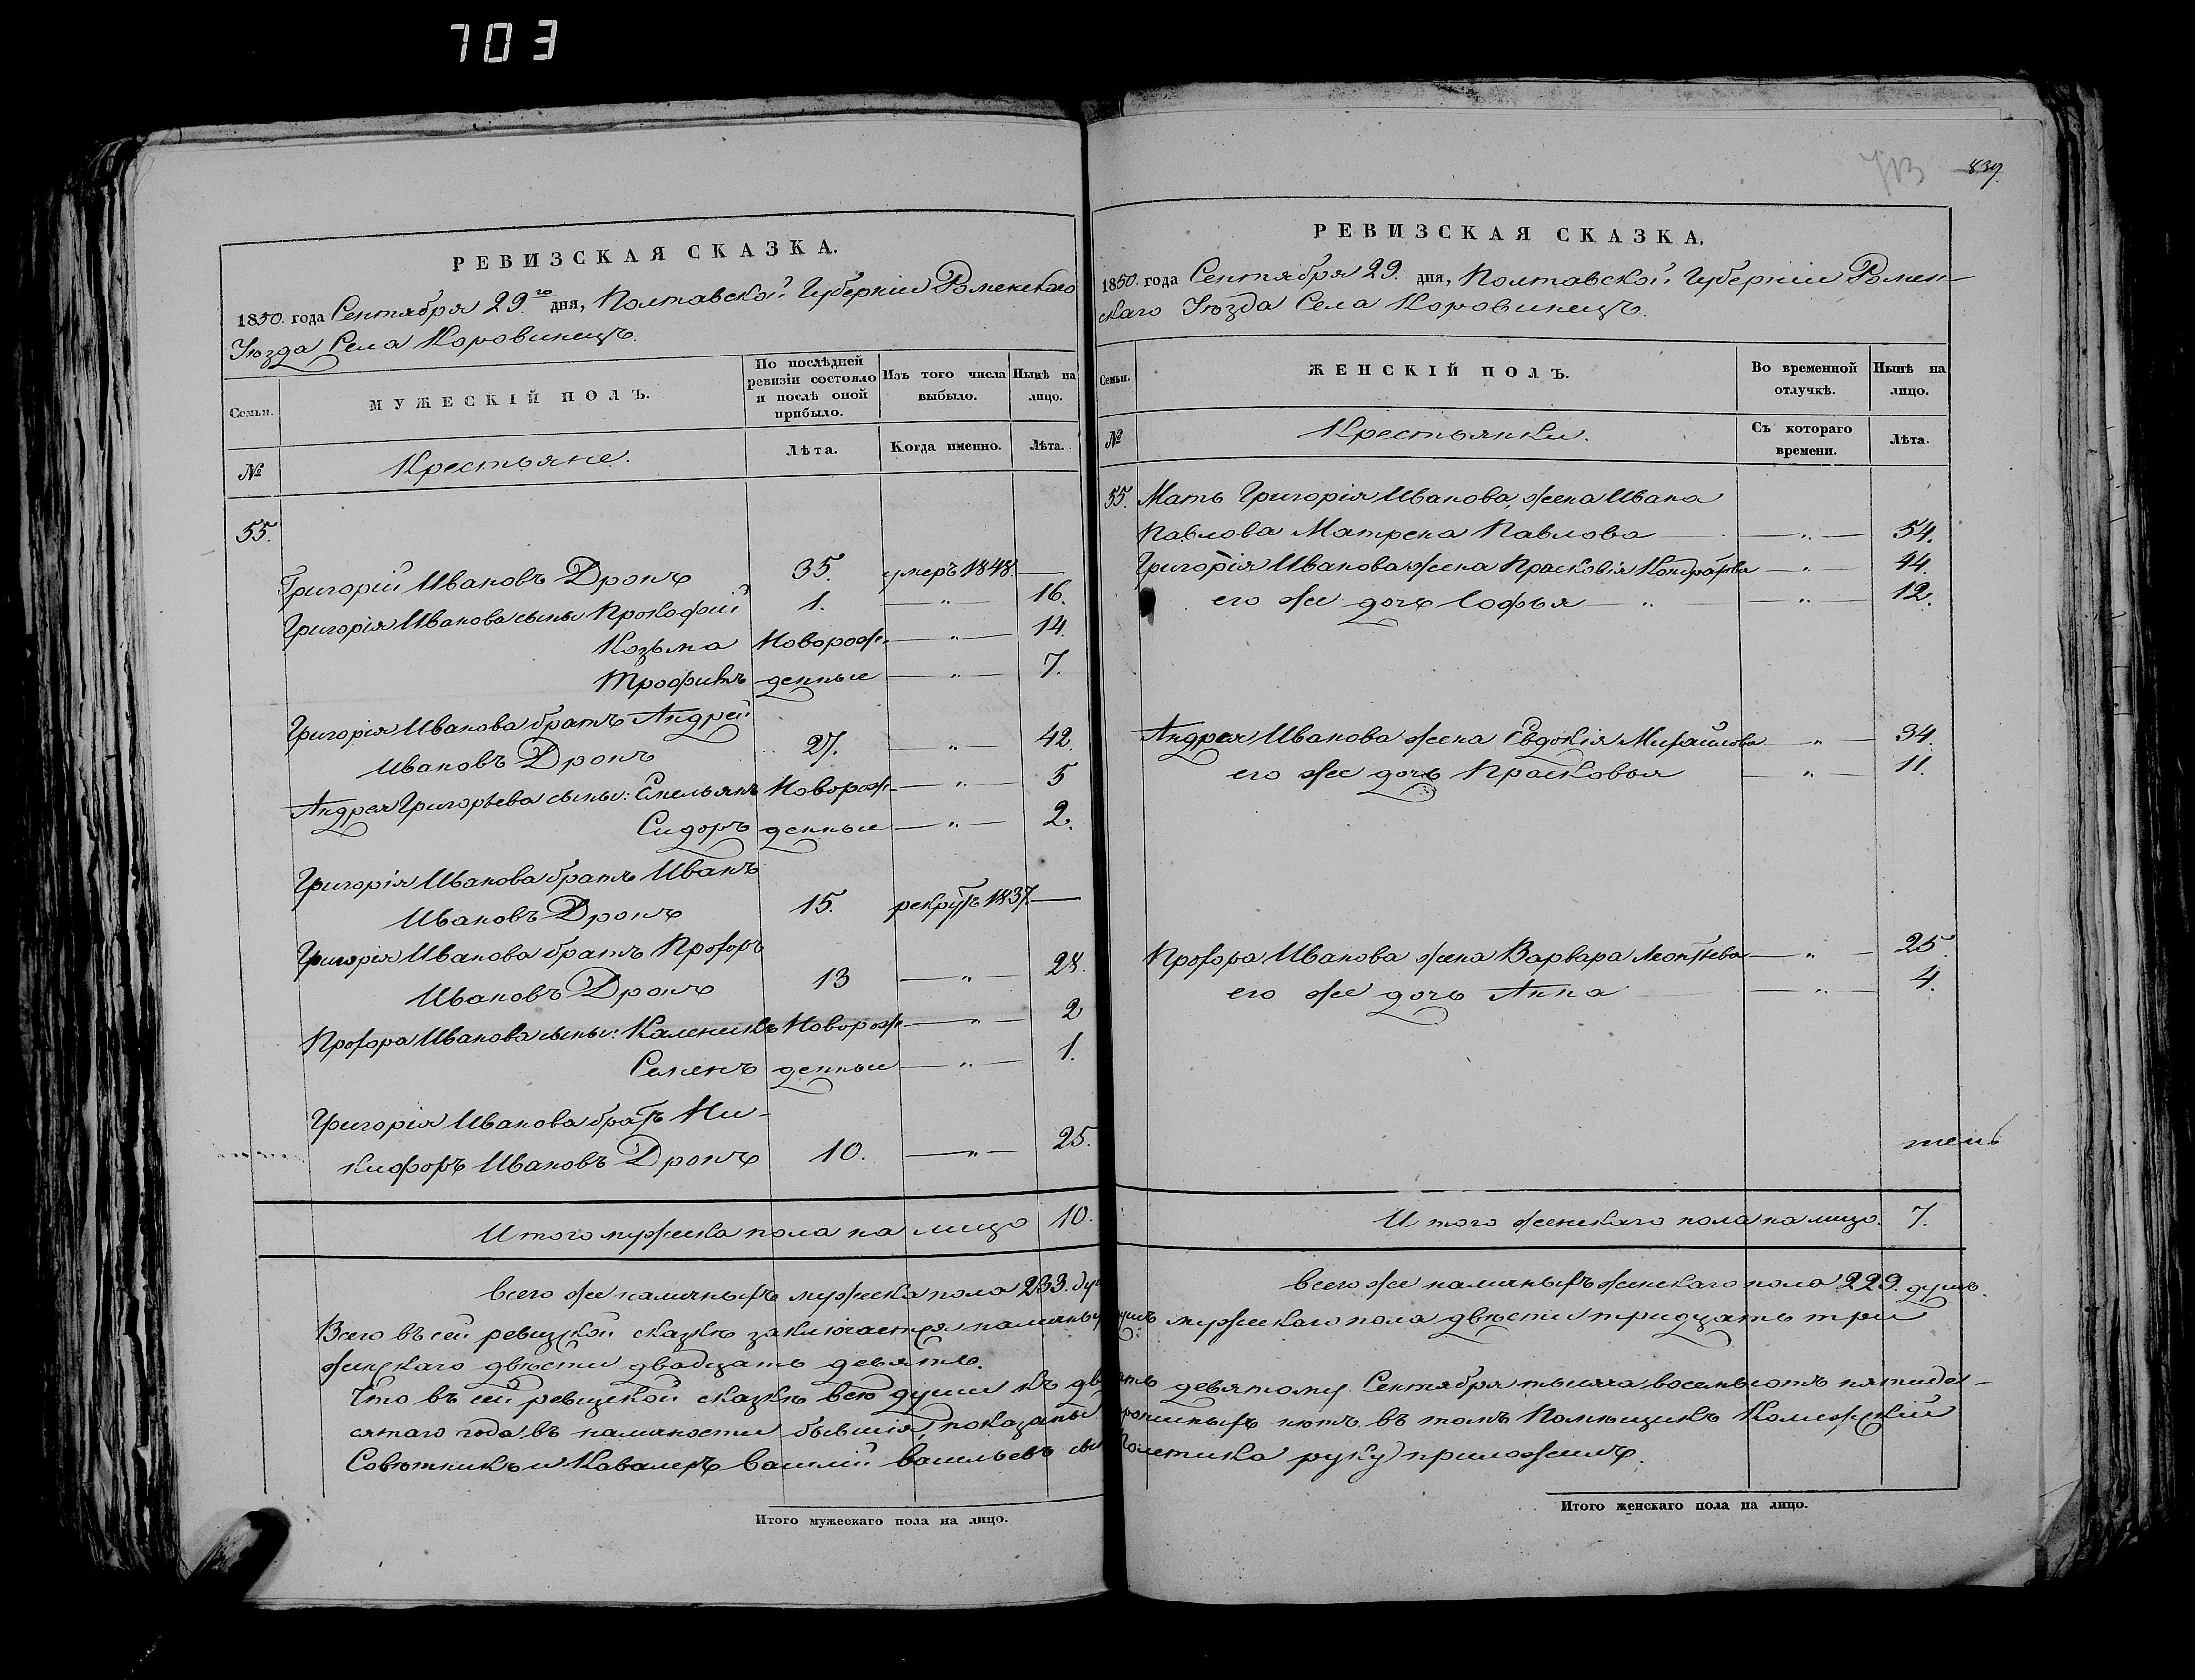 703
713 839.
РЕВИЗСКАЯ СКАЗКА.
1850. года Сентября 29.го дня, Полтавской Губерніи Роменскаго
Уѣзда Села Коровинецъ.
Семьи. МУЖЕСКІЙ ПОЛЪ. По послѣдней ревизіи состояло и послѣ оной прибыло. Изъ того числа выбыло. Нынѣ на лицо.
№ Крестьяне. Лѣта. Когда именно. Лѣта.
55.
Григорій Ивановъ Дронъ 35. умеръ 1848. —
Григорія Иванова сыны Прокофій 1. — „ — 16.
Козьма Новорож- — „ — 14.
Трофимъ денные — „ — 7.
Григорія Иванова братъ Андрей
Ивановъ Дронъ 27. — „ — 42.
Андрея Григорьева сыны: Емельянъ Новорож- — „ — 5
Сидоръ денные — „ — 2.
Григорія Иванова братъ Иванъ
Ивановъ Дронъ 15. рекрутъ 1837. —
Григорія Иванова братъ Прохоръ
Ивановъ Дронъ 13 — „ — 28.
Прохора Иванова сыны: Каленикъ Новорож- — „ — 2
Семенъ денные — „ — 1.
Григорія Иванова братъ Ни-
кифоръ Ивановъ Дронъ 10. — „ — 25.
Итого мужеска пола на лицо 10.
всего же наличныхъ мужеска пола 233. душ
РЕВИЗСКАЯ СКАЗКА.
1850. года Сентября 29. дня, Полтавской Губерніи Ромен-
скаго Уѣзда Села Коровинецъ.
Семьи. ЖЕНСКІЙ ПОЛЪ. Во временной отлучкѣ. Нынѣ на лицо.
№ Крестьянки. Съ котораго времени. Лѣта.
55. Мать Григорія Иванова, жена Ивана
Павлова Матрена Павлова — „ — 54.
Григорія Иванова жена Прасковія Кондратова — „ — 44.
его же дочь Софья — „ — „ — 12.
Андрея Иванова жена Евдокія Михайлова — „ — 34.
его же дочь Прасковья — „ — 11.
Прохора Иванова жена Варвара Леонтьева — „ — 25.
его же дочь Анна — „ — 4.
тель
Итого женскаго пола на лицо. 7.
всего же наличныхъ женскаго пола 229. душъ.
Всего въ сей ревизской сказкѣ заключается наличныхъ душъ мужескаго пола двѣсти тридцать три
женскаго двѣсти двадцать девять.
Что въ сей ревизской сказкѣ всѣ души къ двадцать девятому Сентября тысяча восемьсотъ пятиде-
сятаго года въ наличности бывшія, показаны прописныхъ нѣтъ въ томъ Помѣщикъ Коллежскій
Совѣтникъ и Кавалеръ Василій Васильевъ сынъ Полетика руку приложилъ.
Итого мужескаго пола на лицо.
Итого женскаго пола на лицо.